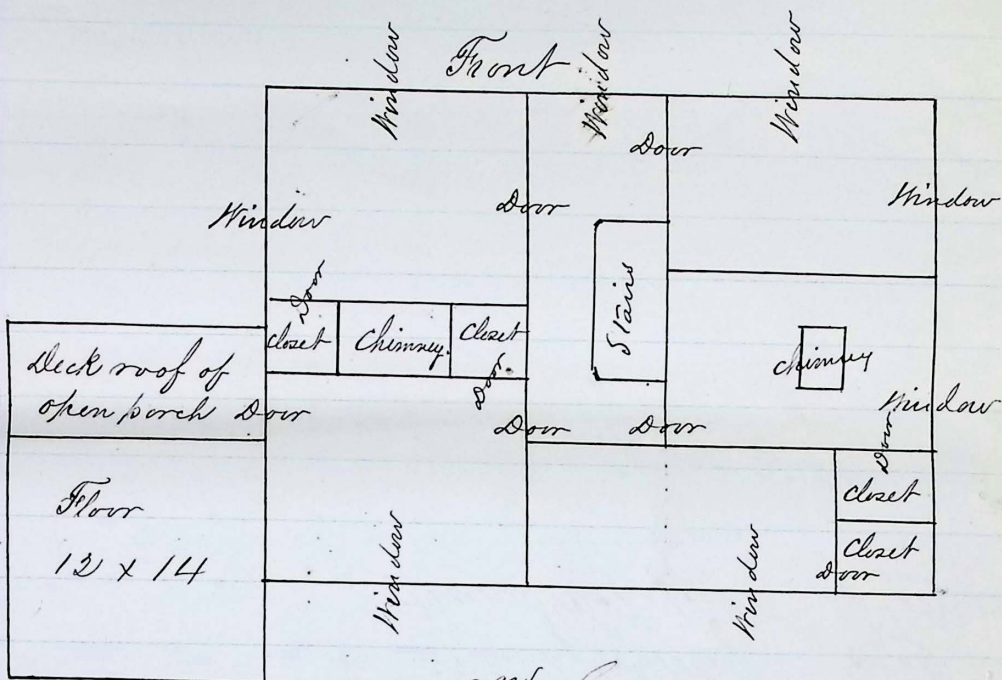 Front
Window
Window
Window
Door
Door
Window
Window
Door
Stairs
Closet
Chimney.
Closet
Door.
chimney
Deck roof of
open porch Door
Window
Door
Door
Door
Closet
Floor
12 x 14
Closet
Door
Window
Window